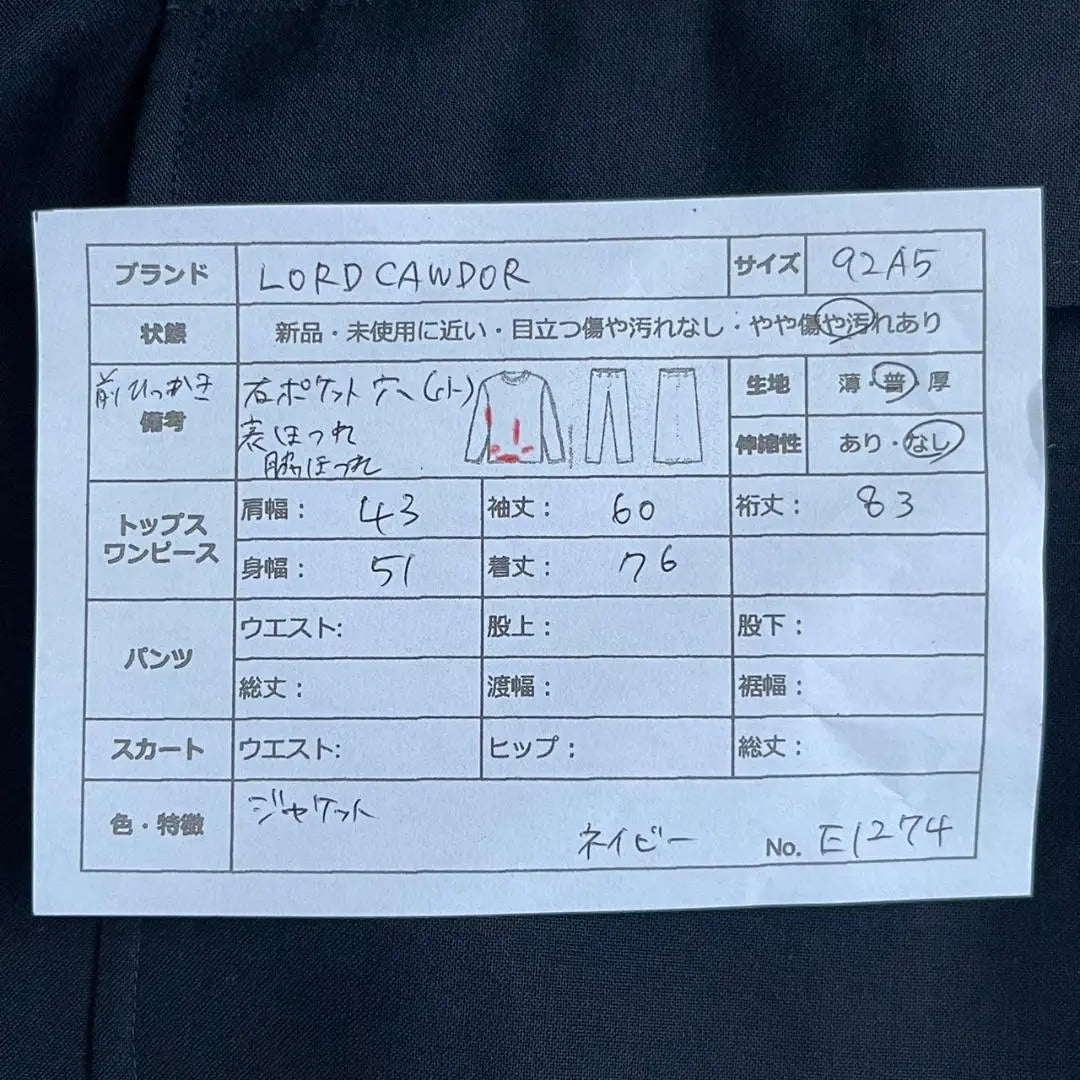 ブランド LORD CAWDOR サイズ 92A5
状態 新品・未使用に近い・目立つ傷や汚れなし・やや傷や汚れあり
前ひっかき
備考
右ポケット穴(小)
裏ほつれ
脇ほつれ
生地 薄・普・厚
伸縮性 あり・なし
トップス
ワンピース
肩幅： 43 袖丈： 60 裄丈： 83
身幅： 51 着丈： 76
パンツ
ウエスト: 股上： 股下：
総丈： 渡幅： 裾幅：
スカート ウエスト: ヒップ： 総丈：
色・特徴 ジャケット
ネイビー No. E1274